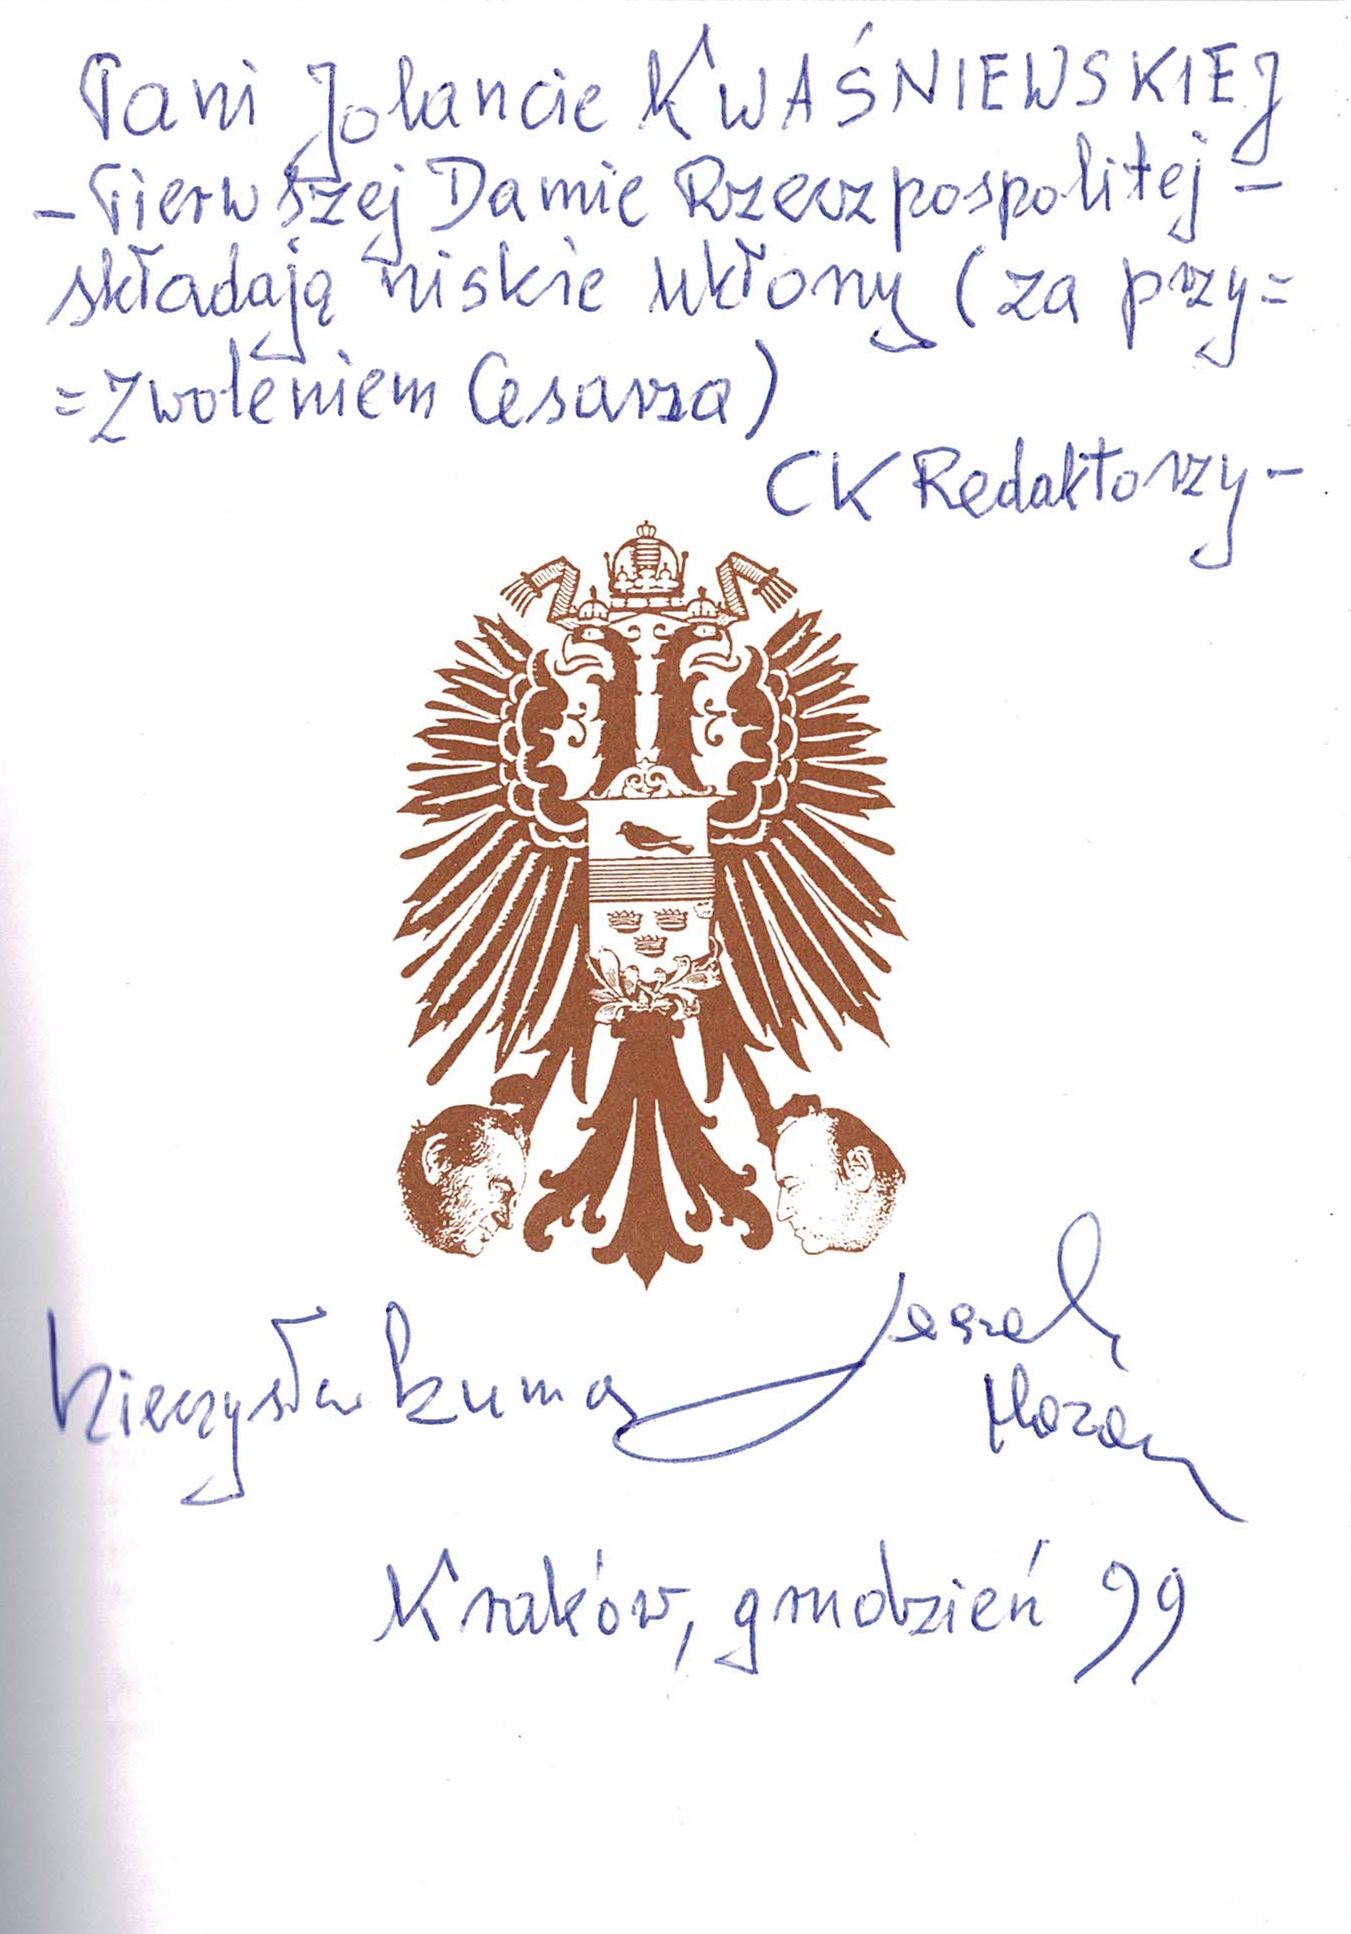 Pani Jolancie KWAŚNIEWSKIEJ
- Pierwszej Damie Rzeczpospolitej -
składają niskie ukłony (za przy=
=zwoleniem Cesarza)
CK Redaktorzy -
Mieczysław Czuma Leszek
Mazan
Kraków, grudzień 99